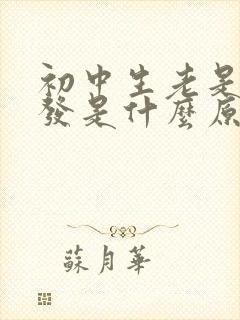 初中生老是
發是什麼原
蘇月華